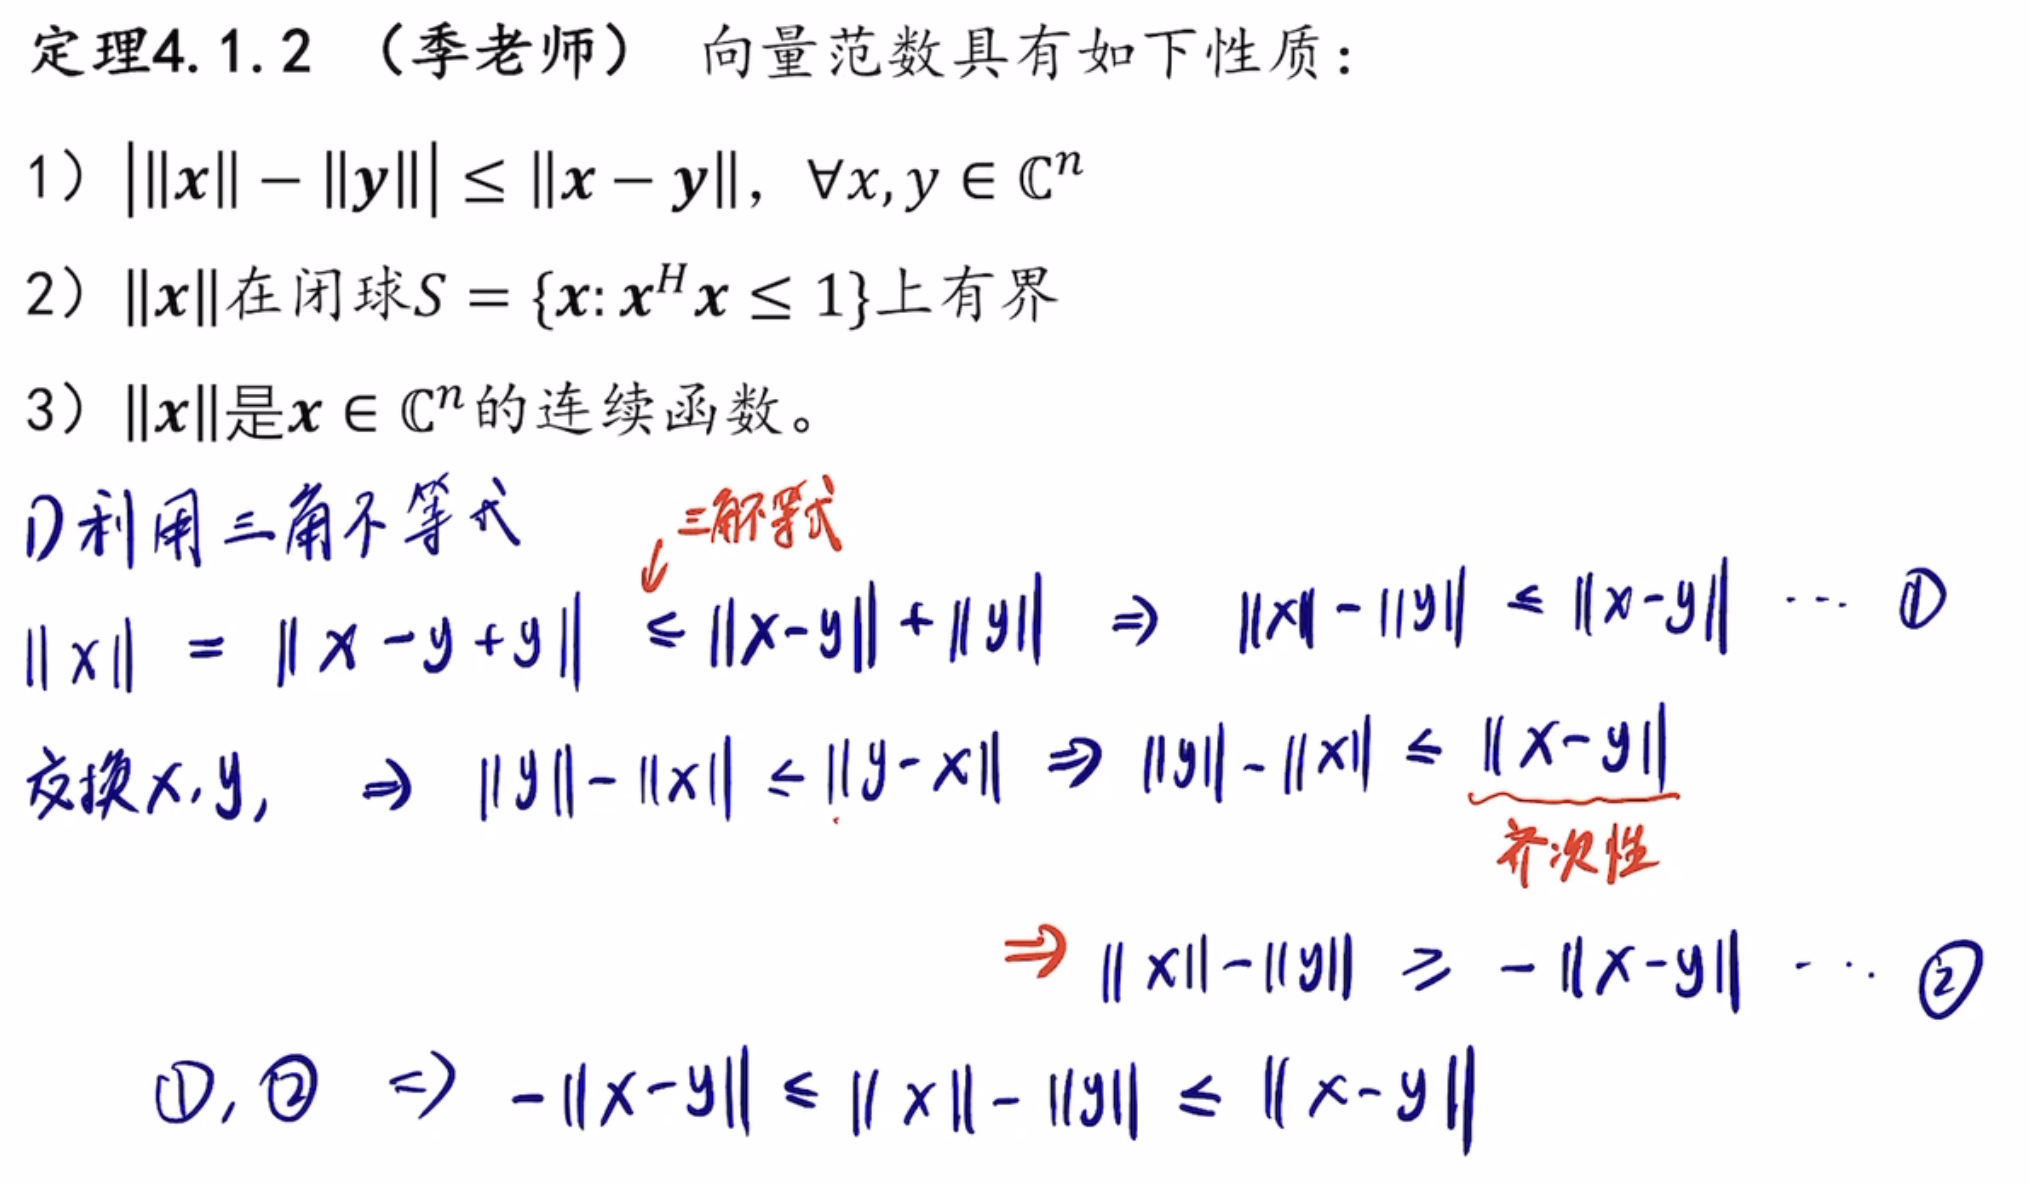 定理4.1.2 （季老师） 向量范数具有如下性质：
1）|‖x‖ − ‖y‖| ≤ ‖x − y‖，∀x, y ∈ ℂⁿ
2）‖x‖在闭球S = {x: xᴴx ≤ 1}上有界
3）‖x‖是x ∈ ℂⁿ的连续函数。
1) 利用三角不等式
三角不等式
‖x‖ = ‖x − y + y‖ ≤ ‖x−y‖ + ‖y‖ ⇒ ‖x‖ − ‖y‖ ≤ ‖x−y‖ ··· ①
交换x, y, ⇒ ‖y‖ − ‖x‖ ≤ ‖y−x‖ ⇒ ‖y‖ − ‖x‖ ≤ ‖x−y‖
齐次性
⇒ ‖x‖ − ‖y‖ ≥ −‖x−y‖ ··· ②
①, ② ⇒ −‖x−y‖ ≤ ‖x‖ − ‖y‖ ≤ ‖x−y‖